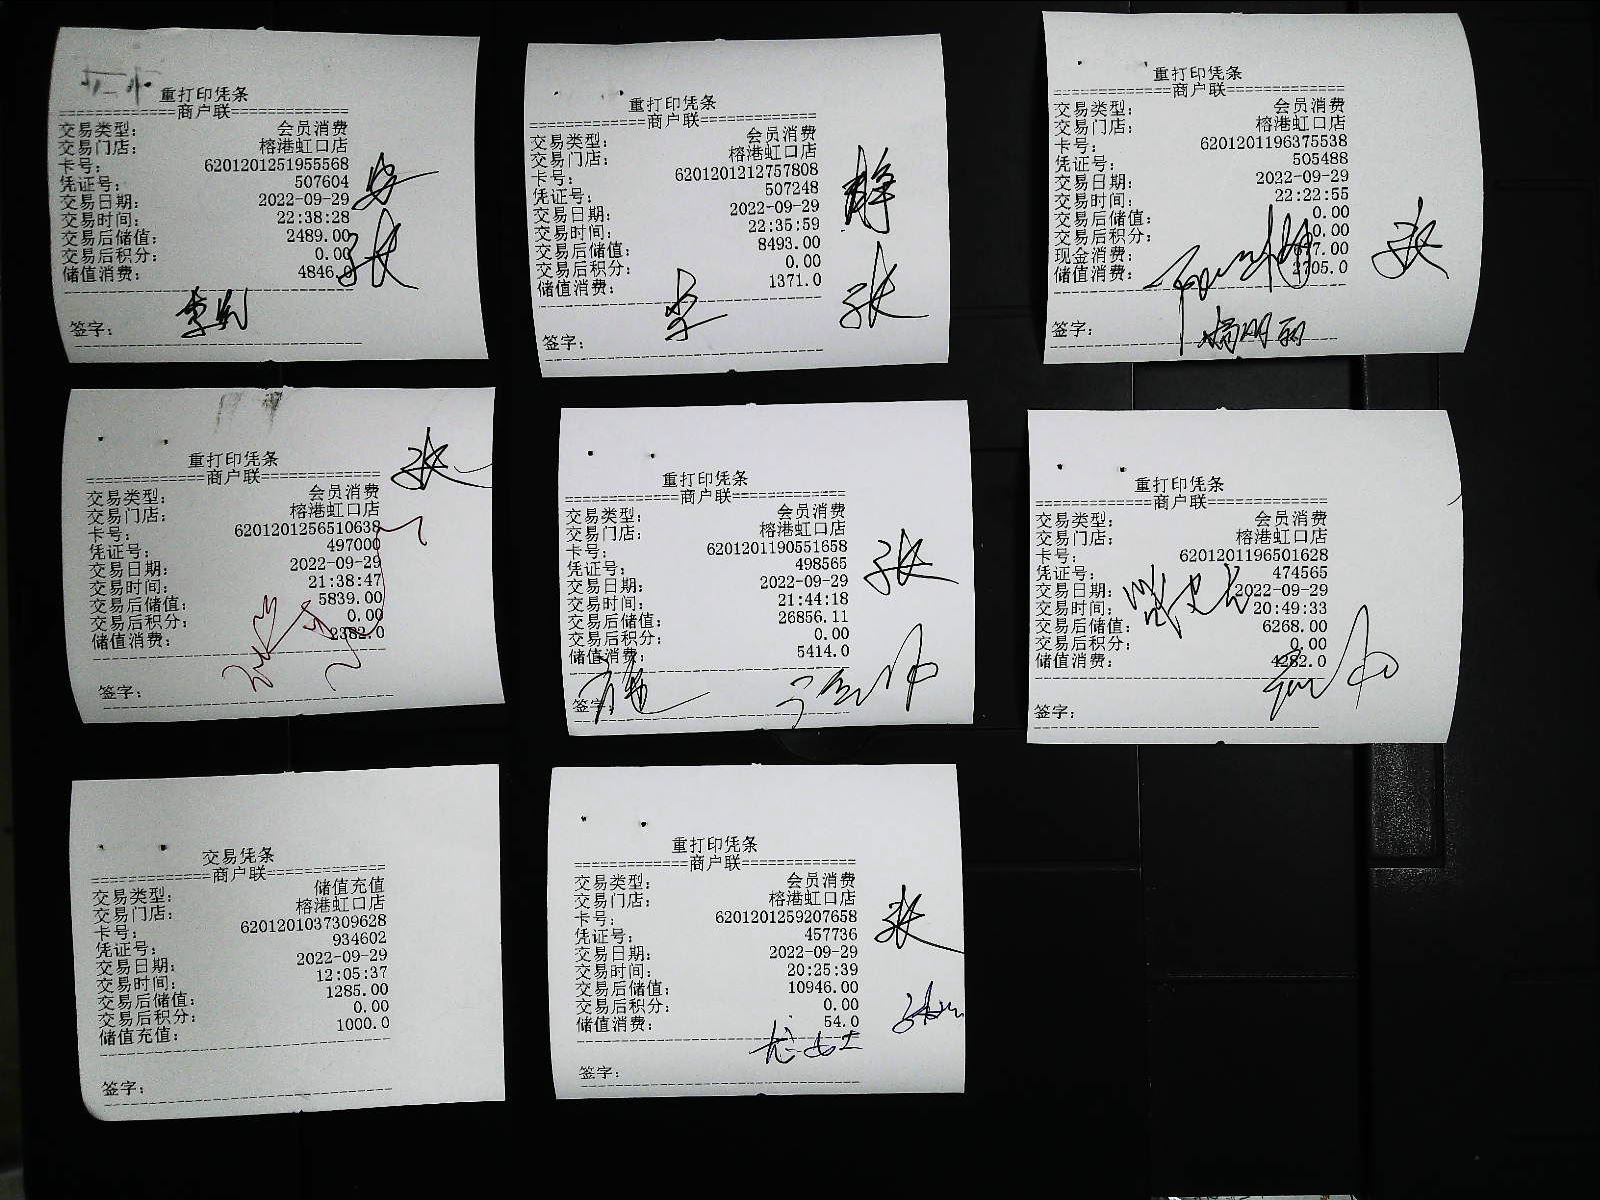 重打印凭条
============商户联============
交易类型: 会员消费
交易门店: 榕港虹口店
卡号: 6201201251955568
凭证号: 507604
交易日期: 2022-09-29
交易时间: 22:38:28
交易后储值: 2489.00
交易后积分: 0.00
储值消费: 4846.0
签字:
张
重打印凭条
============商户联============
交易类型: 会员消费
交易门店: 榕港虹口店
卡号: 6201201212757808
凭证号: 507248
交易日期: 2022-09-29
交易时间: 22:35:59
交易后储值: 8493.00
交易后积分: 0.00
储值消费: 1371.0
签字:
静
张
李
重打印凭条
============商户联============
交易类型: 会员消费
交易门店: 榕港虹口店
卡号: 6201201196375538
凭证号: 505488
交易日期: 2022-09-29
交易时间: 22:22:55
交易后储值: 0.00
交易后积分: 0.00
现金消费:
储值消费: 2705.0
签字:
张
重打印凭条
============商户联============
交易类型: 会员消费
交易门店: 榕港虹口店
卡号: 6201201256510638
凭证号: 497000
交易日期: 2022-09-29
交易时间: 21:38:47
交易后储值: 5839.00
交易后积分: 0.00
储值消费: 2382.0
签字:
张
重打印凭条
============商户联============
交易类型: 会员消费
交易门店: 榕港虹口店
卡号: 6201201190551658
凭证号: 498565
交易日期: 2022-09-29
交易时间: 21:44:18
交易后储值: 26856.11
交易后积分: 0.00
储值消费: 5414.0
签字:
张
重打印凭条
============商户联============
交易类型: 会员消费
交易门店: 榕港虹口店
卡号: 6201201196501628
凭证号: 474565
交易日期: 2022-09-29
交易时间: 20:49:33
交易后储值: 6268.00
交易后积分: 0.00
储值消费: 4282.0
签字:
交易凭条
============商户联============
交易类型: 储值充值
交易门店: 榕港虹口店
卡号: 6201201037309628
凭证号: 934602
交易日期: 2022-09-29
交易时间: 12:05:37
交易后储值: 1285.00
交易后积分: 0.00
储值充值: 1000.0
签字:
重打印凭条
============商户联============
交易类型: 会员消费
交易门店: 榕港虹口店
卡号: 6201201259207658
凭证号: 457736
交易日期: 2022-09-29
交易时间: 20:25:39
交易后储值: 10946.00
交易后积分: 0.00
储值消费: 54.0
签字:
张